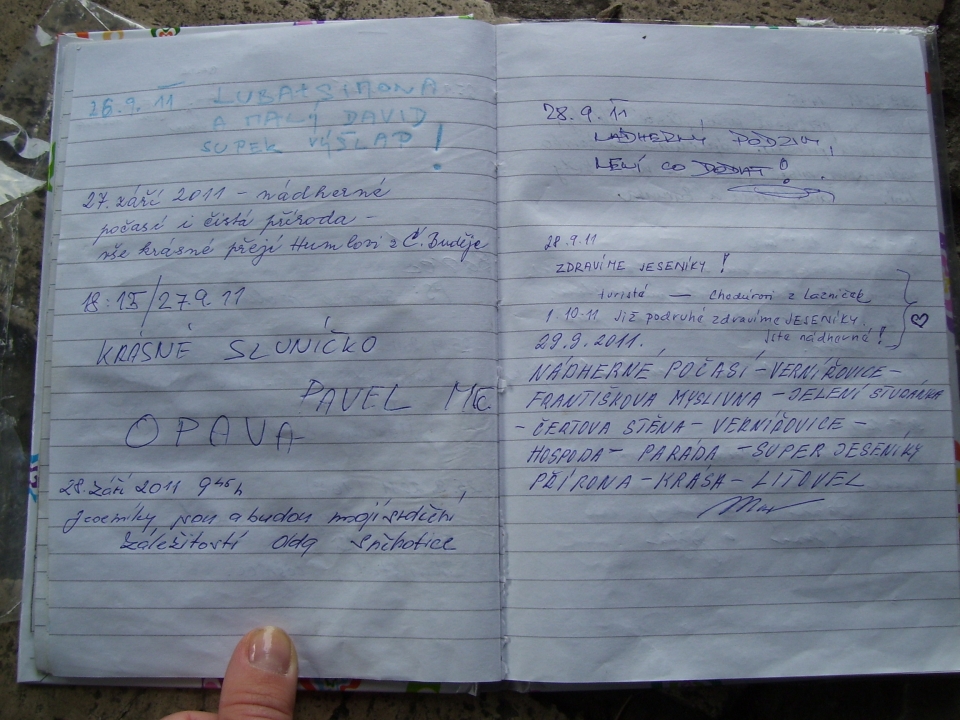 26.9.11 LUBA+SIMONA
A MALÝ DAVID
SUPER VÝŠLAP!
27. září 2011 – nádherné
počasí i čistá příroda –
vše krásné přejí Humlovi z Č. Buděje
18:15/27.9.11
KRÁSNÉ SLUNÍČKO
PAVEL
OPAVA
28. září 2011 9 45 h
Jeseníky jsou a budou mojí srdeční
záležitostí Olda
28.9.11
NÁDHERNÝ PODZIM,
NENÍ CO DODAT!
28.9.11
ZDRAVÍME JESENÍKY!
turisté — Chodurovi z Lazniček
1.10.11 Již podruhé zdravíme JESENÍKY.
Jste nádherné!
29.9.2011.
NÁDHERNÉ POČASÍ – VERNÍŘOVICE –
FRANTIŠKOVA MYSLIVNA – JELENÍ STUDÁNKA
– ČERTOVA STĚNA – VERNÍŘOVICE –
HOSPODA – PARÁDA – SUPER JESENÍKY
PŘÍRODA – KRÁSA – LITOVEL